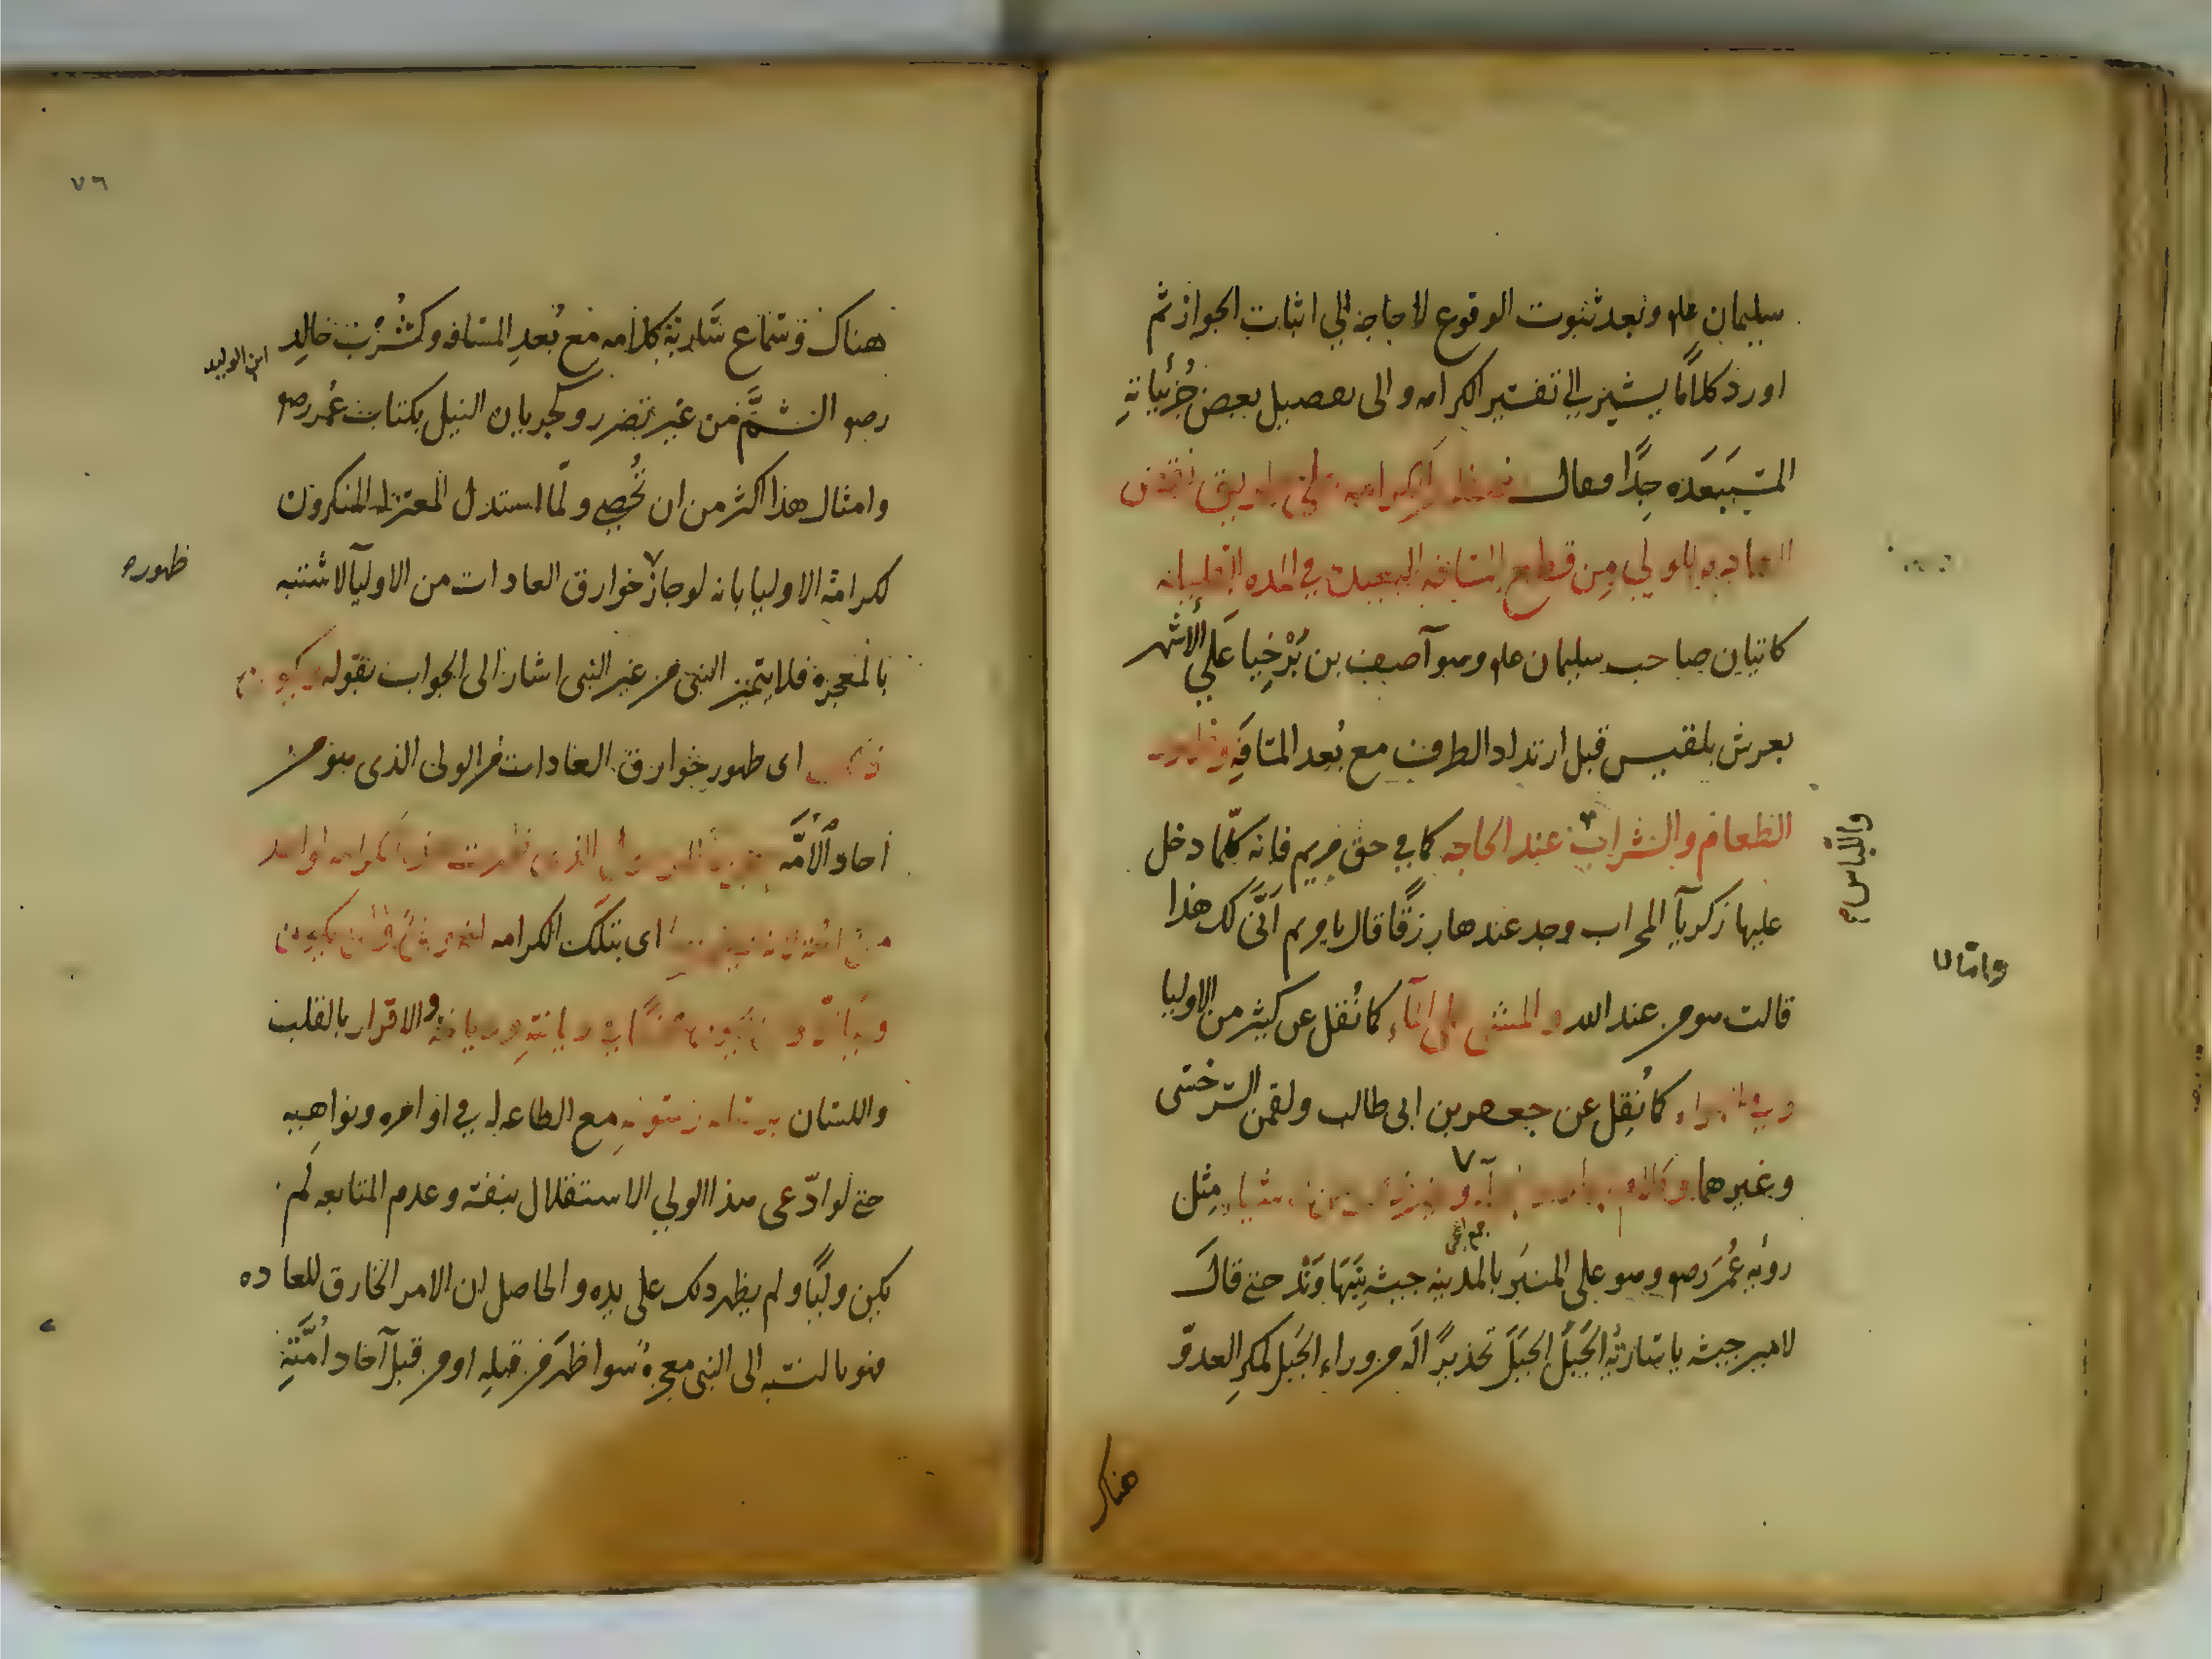 سليمان علم وبعد ثبوت الوقوع لا حاجة الى اثبات الجواز ثم
اورد كلاما يشير الى تفسير الكرامه والى تفصيل بعض جزئياته
المستبعده جدا فقال فتظهر الكرامة على طريق نقض
العادة للولي من قطع المسافه البعيدة في المده القليله
كاتيان صاحب سليمان علم وهو آصف بن برخيا على الأشهر
بعرش بلقيس قبل ارتداد الطرف مع بعد المسافة وظهور
الطعام والشراب عند الحاجه كما في حق مريم فانه كلما دخل
واللباس
عليها زكريا المحراب وجد عندها رزقا قال يا مريم انى لك هذا
قالت هو من عند الله والمشي على الماء كما نقل عن كثير من الاوليا
وفي الهواء كما نقل عن جعفر بن ابى طالب ولقمن السرخسى
وغيرهما وكلام الجماد والعجماء وغير ذلك من الاشياء مثل
رؤية عمر رضه وهو على المنبر بالمدينه جيشه بنهاوند حتى قال
لامير جيشه يا سارية الجبل الجبل تحذيرا له من وراء الجبل لمكر العدو
هناك
٧٦
هناك وسماع سارية كلامه مع بعد المسافه وكشرب خالد
ابن الوليد
رضه السم من غير تضرر وكجريان النيل بكتاب عمر رضه
وامثال هذا اكثر من ان تحصى ولما استدل المعتزله المنكرون
لكرامة الاوليا بانه لو جاز خوارق العادات من الاوليآ لاشتبه
ظهوره
بالمعجزه فلا يتميز النبى من غير النبى اشار الى الجواب بقوله ويكون
ذلك اى ظهور خوارق العادات من الولى الذى هو من
احاد الأمه معجزة للرسول الذى ظهرت هذه الكرامه لواحد
من امته لانه يظهر بها اى بتلك الكرامه انه ولى ولن يكون
وليا الا وان يكون محقا في ديانته وديانته والاقرار بالقلب
واللسان برسالة رسوله مع الطاعه له في اوامره ونواهيه
حتى لو ادعى هذا الولي الاستقلال بنفسه وعدم المتابعه لم
يكن وليا ولم يظهر ذلك على يده والحاصل ان الامر الخارق للعاده
فهو بالنسبه الى النبى معجزة سوا ظهر من قبله او من قبل آحاد امته